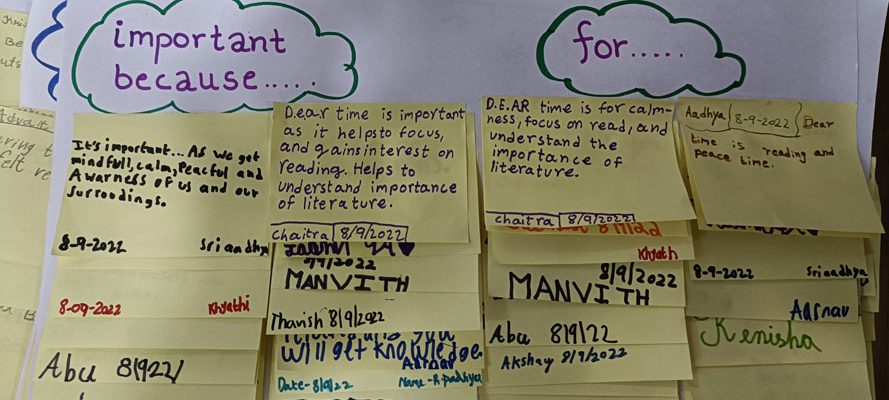 important
because.....
for.....
It's important... As we get
mindfull, calm, Peacful and
Awarness of us and our
Surroodings.
8-9-2022 Sriaadhya
8-09-2022 Khyathi
Abu 8/9/22
D.e.a.r time is important
as it helps to focus,
and gains interest on
reading. Helps to
understand importance
of literature.
Chaitra 8/9/2022
MANVITH
Thavish 8/9/2022
will get knowledge.
Aarnav
Date-8/9/22 Name-R.pradhya
D.E.AR time is for calm-
ness, focus on read, and
understand the
importance of
literature.
Chaitra 8/9/2022
Khyath
8/9/2022
MANVITH
Abu 8/9/22
Akshay 8/9/2022
Aadhya 8-9-2022 Dear
time is reading and
peace time.
8-9-2022 Sriaadhya
Aarnav
Kenisha